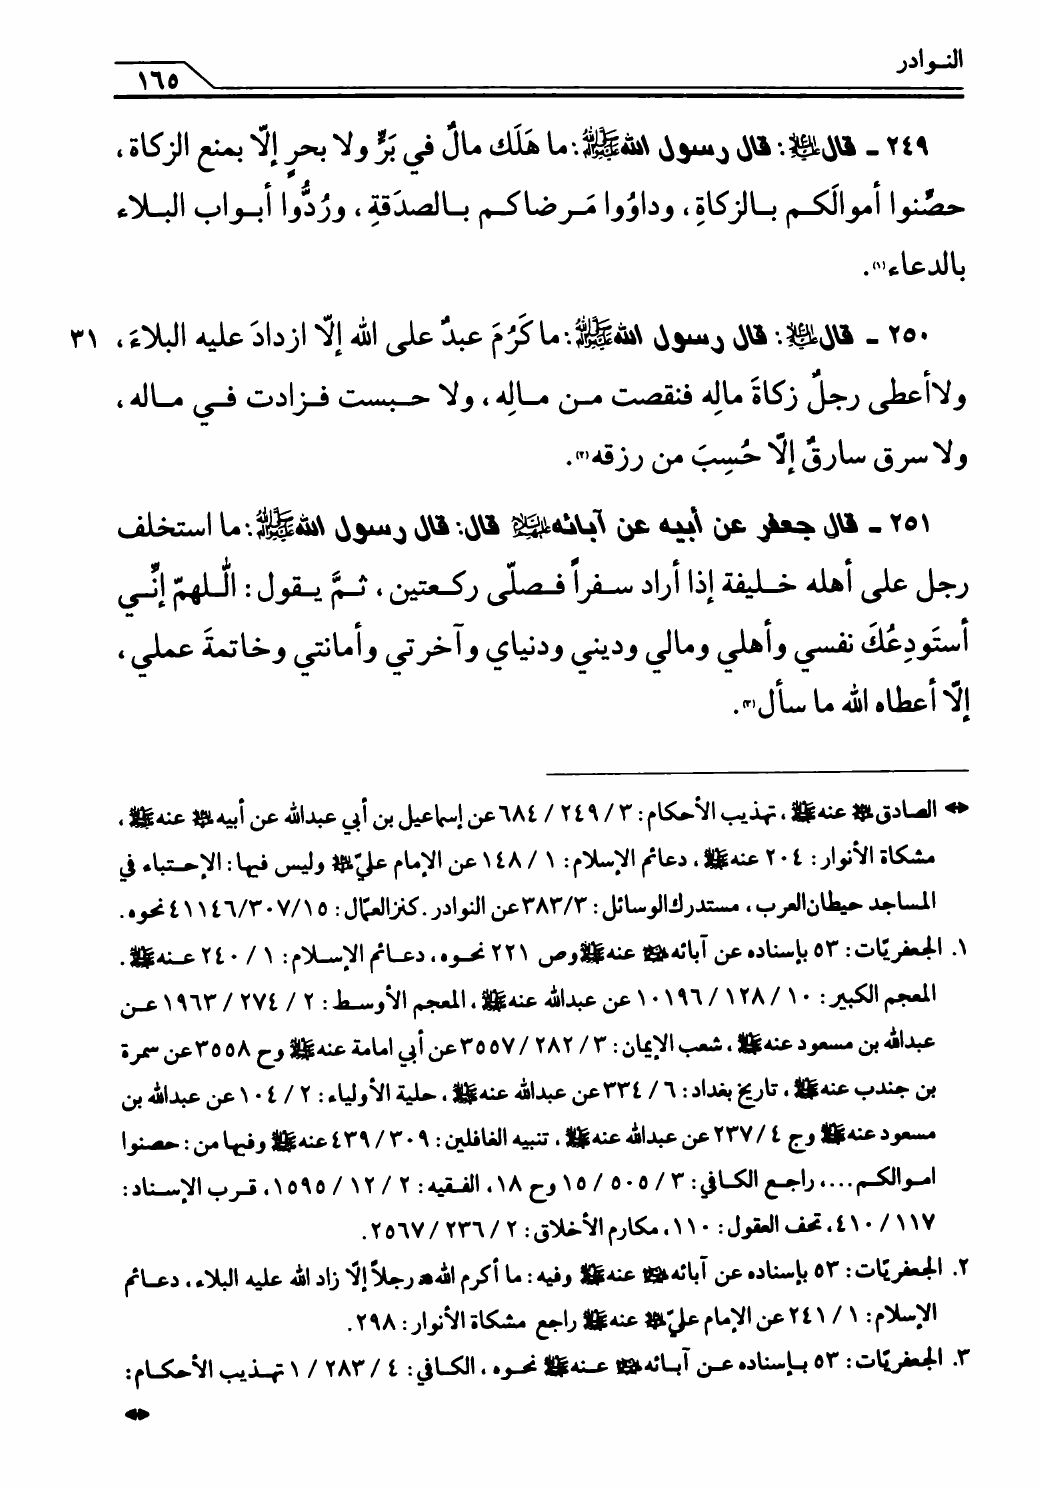 النوادر
١٦٥
٢٤٩ ـ قال ﷺ: قال رسول الله ﷺ: ما هَلَك مالٌ في بَرٍّ ولا بحرٍ إلّا بمنع الزكاة،
حصِّنوا أموالَكم بالزكاةِ، وداوُوا مَرضاكم بالصدَقةِ، ورُدُّوا أبواب البلاء
بالدعاء(١).
٢٥٠ ـ قال: قال رسول الله ﷺ: ما كَرُمَ عبدٌ على الله إلّا ازدادَ عليه البلاءَ، ٣١
ولا أعطى رجلٌ زكاةَ مالِه فنقصت من مالِه، ولا حبست فزادت في ماله،
ولا سرق سارقٌ إلّا حُسِبَ من رزقه(٢).
٢٥١ ـ قال جعفر عن أبيه عن آبائه قال: قال رسول الله ﷺ: ما استخلف
رجل على أهله خليفة إذا أراد سفراً فصلّى ركعتين، ثمَّ يقول: اللّهمّ إنِّي
أستَودِعُكَ نفسي وأهلي ومالي وديني ودنياي وآخرتي وأمانتي وخاتمةَ عملي،
إلّا أعطاه الله ما سأل(٣).
الصادق عنه ﷺ، تهذيب الأحكام: ٣ / ٢٤٩ / ٦٨٤ عن إسماعيل بن أبي عبدالله عن أبيه عنه ﷺ،
مشكاة الأنوار: ٢٠٤ عنه ﷺ، دعائم الإسلام: ١ / ١٤٨ عن الإمام عليّ وليس فيها: الإحتباء في
المساجد حيطان العرب، مستدرك الوسائل: ٣/ ٣٨٣ عن النوادر. كنز العمّال: ١٥ /٣٠٧/ ٤١١٤٦ نحوه.
١. الجعفريّات: ٥٣ بإسناده عن آبائه عنه ﷺ وص ٢٢١ نحوه، دعائم الإسلام: ١ / ٢٤٠ عنه ﷺ.
المعجم الكبير: ١٠ / ١٢٨ / ١٠١٩٦ عن عبدالله عنه ﷺ، المعجم الأوسط: ٢ / ٢٧٤ / ١٩٦٣ عن
عبدالله بن مسعود عنه ﷺ، شعب الإيمان: ٣ / ٢٨٢ / ٣٥٥٧ عن أبي امامة عنه ﷺ وح ٣٥٥٨ عن سمرة
بن جندب عنه ﷺ، تاريخ بغداد: ٦ / ٣٣٤ عن عبدالله عنه ﷺ، حلية الأولياء: ٢ / ١٠٤ عن عبدالله بن
مسعود عنه ﷺ وج ٤ / ٢٣٧ عن عبدالله عنه ﷺ، تنبيه الغافلين: ٣٠٩ / ٤٣٩ عنه ﷺ وفيها من: حصنوا
اموالكم...، راجع الكافي: ٣ / ٥٠٥ / ١٥ وح ١٨، الفقيه: ٢ / ١٢ / ١٥٩٥، قرب الإسناد:
١١٧ / ٤١٠، تحف العقول: ١١٠، مكارم الأخلاق: ٢ / ٢٣٦ / ٢٥٦٧.
٢. الجعفريّات: ٥٣ بإسناده عن آبائه عنه ﷺ وفيه: ما أكرم الله رجلاً إلّا زاد الله عليه البلاء، دعائم
الإسلام: ١ / ٢٤١ عن الإمام عليّ عنه ﷺ راجع مشكاة الأنوار: ٢٩٨.
٣. الجعفريّات: ٥٣ بإسناده عن آبائه عنه ﷺ نحوه، الكافي: ٤ / ٢٨٣ / ١ تهذيب الأحكام: